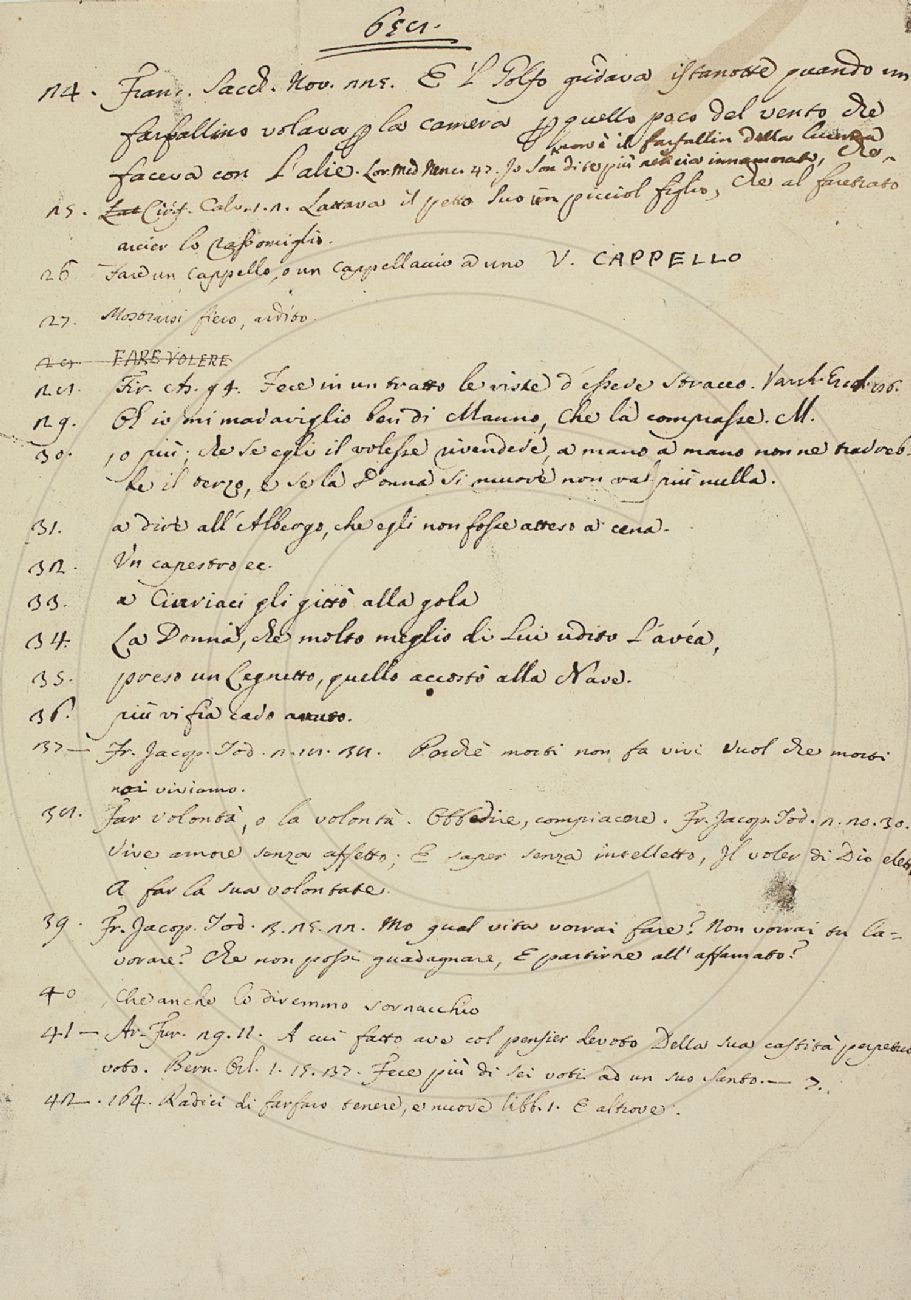 658.
24. Franc. Sacch. Nov. 225. E 'l Golfo gridava istanotte quando un
farfallino volava p la camera p quello poco del vento che
faceva con l'alie. Lor. Med. Nenc. 47. Io son di te più
non è il farfallin della lucerna
innamorato, che
25. Lat Ciriff. Calv. 1. 2. Lattava il petto suo un picciol figlio, che al faretrato
arcier lo rassomiglio.
26 Fare un cappello, o un cappellaccio a uno V. CAPPELLO
27. Mostrarsi fiero, ardito.
28 FARE VOLERE
28. Fir. As. 94. Fece in un tratto le viste d'essere stracco. Varch. Ercol. 96.
29. Oh io mi maraviglio ben di Manno, che la comprasse. M.
30. , o più; che se egli il volesse rivendere, a mano a mano non ne trarreb-
be il terzo, e se la Donna si muore non val più nulla.
31. a dire all'Albergo, che egli non fosse atteso a cena.
32. Un capestro ec.
33. a Ciuriaci gli gittò alla gola
34. La Donna, che molto meglio di lui udito l'avea,
35. preso un legnetto, quello accostò alla Nave.
36. più vi fia cado avuto.
37— Fr. Jacop. Tod. 2. 28. 38. Poichè morti non fa vivi Vuol che morti
noi viviamo.
38. Far volontà, o la volontà. Obbedire, compiacere. Fr. Jacop. Tod. 2. 20. 30.
Vive amore senza affetto; E saper senza intelletto, Il voler di Dio elett
A far la sua volontate.
39. Fr. Jacop. Tod. 3. 25. 22. Mo qual vita vorrai fare? Non vorrai tu la=
vorare? Che non possi guadagnare, E partirne all'affamato?
40 , che anche lo diremmo sornacchio
41— Ar. Fur. 29. 11. A cui fatto ave col pensier devoto Della sua castità perpetuo
voto. Bern. Orl. 1. 15. 37. Fece più di sei voti ad un suo Santo. —
42—. 164. Radici di farfaro tenere, e nuove libb. 1. E altrove.